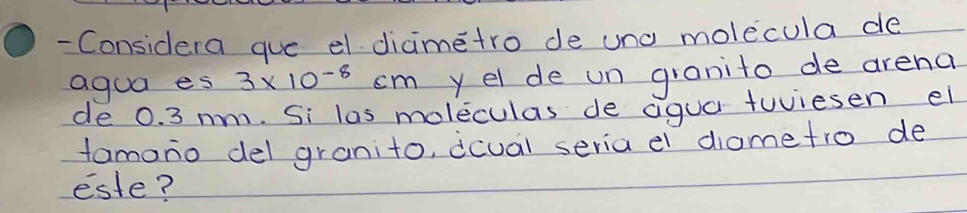 - Considera que el diámetro de una molécula de
agua es 3x10⁻⁸ cm y el de un granito de arena
de 0.3 mm. Si las moléculas de agua tuviesen el
tamaño del granito, ¿cuál seria el diametro de
éste?